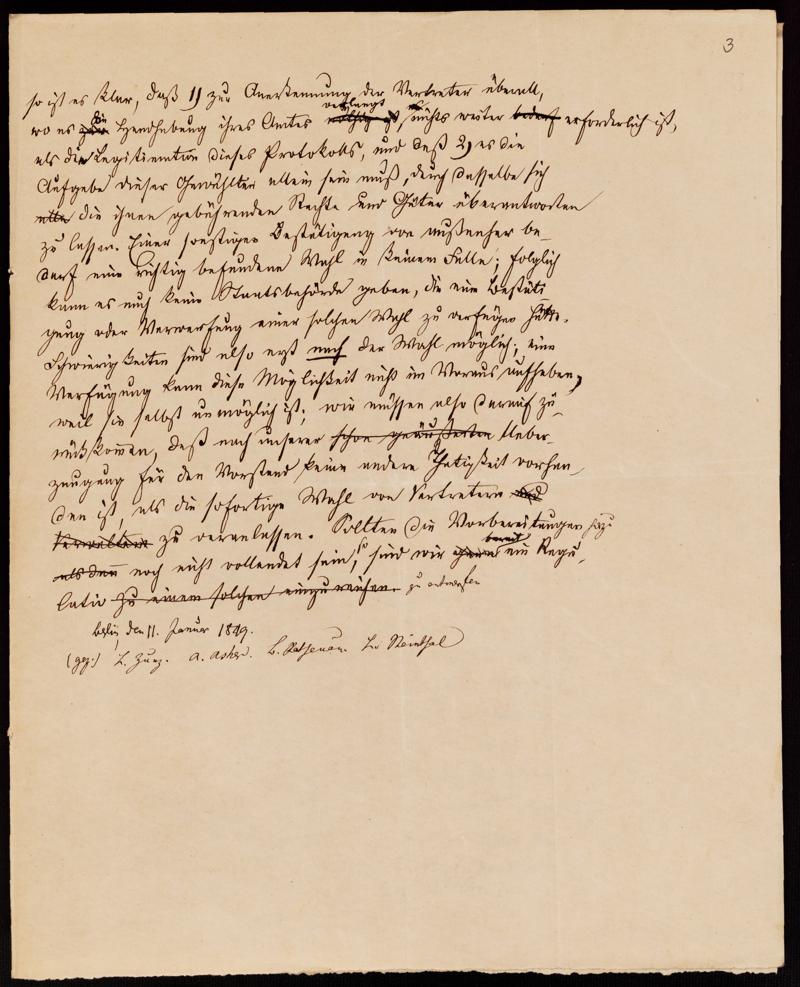 3
so ist es klar, daß 1) zur Anerkennung der Vertreter überall,
verlangt
wo es zur die Handhabung ihres Amtes nöthig ist, nichts weiter bedarf erforderlich ist,
als die Legitimation dieses Protokolls, und daß 2) es die
Aufgabe dieser Gewählten allein sein muß, durch dasselbe sich
alle die ihnen gebührenden Rechte und Güter überantworten
zu lassen. Einer sonstigen Bestätigung von außenher be-
darf eine richtig befundene Wahl in keinem Falle; folglich
kann es auch keine Staatsbehörde geben, die eine Bestäti
gung oder Verwerfung einer solchen Wahl zu verfügen hätte.
Schwierigkeiten sind also erst nach der Wahl möglich; eine
Verfügung kann diese Möglichkeit nicht im Voraus aufheben,
weil sie selbst unmöglich ist; wir müssen also darauf zu-
rückkommen, daß nach unserer schon geäußerten Ueber-
zeugung für den Vorstand keine andere Thätigkeit vorhan-
den ist, als die sofortige Wahl von Vertretern und
Verwaltern zu veranlassen. Sollten die Vorbereitungen hiezu
bereit
alsdann noch nicht vollendet sein, so sind wir gern ein Regu-
lativ zu einem solchen einzureichen. zu entwerfen
Berlin, den 11. Januar 1849.
(gez.) L. Zunz. A. Asher. B. Rathenau. L. Steinthal